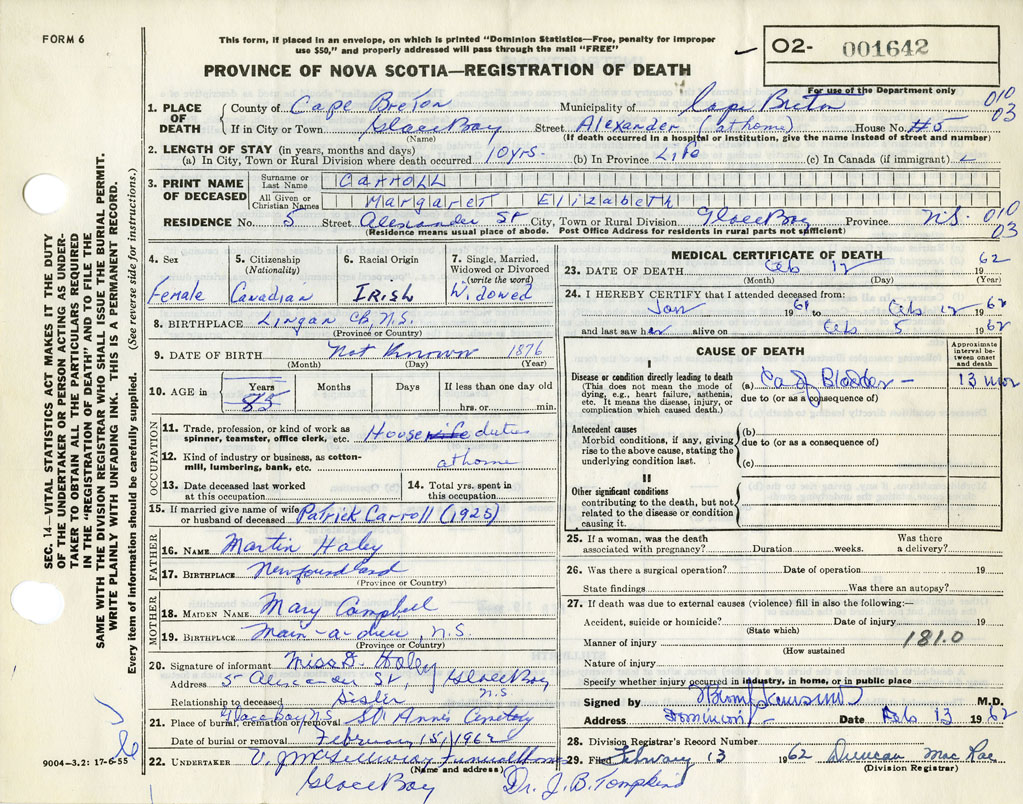 FORM 6
This form, if placed in an envelope, on which is printed "Dominion Statistics—Free, penalty for improper
use $50," and properly addressed will pass through the mail "FREE"
O2- 001642
PROVINCE OF NOVA SCOTIA—REGISTRATION OF DEATH
For use of the Department only
010
03
1. PLACE OF DEATH
County of Cape Breton Municipality of Cape Breton
If in City or Town Glace Bay Street Alexander (at home) House No. #5
(Name) (If death occurred in a hospital or institution, give the name instead of street and number)
2. LENGTH OF STAY (in years, months and days)
(a) In City, Town or Rural Division where death occurred 10 yrs. (b) In Province Life (c) In Canada (if immigrant)
3. PRINT NAME OF DECEASED
Surname or Last Name CARROLL
All Given or Christian Names MARGARETT ElizabeTh
RESIDENCE No. 5 Street Alexander St City, Town or Rural Division Glace Bay Province N.S. 010
03
(Residence means usual place of abode. Post Office Address for residents in rural parts not sufficient)
4. Sex
Female
5. Citizenship
(Nationality)
Canadian
6. Racial Origin
IRISH
7. Single, Married,
Widowed or Divorced
(write the word)
Widowed
8. BIRTHPLACE Lingan CB, N.S.
(Province or Country)
9. DATE OF BIRTH Not Known 1876
(Month) (Day) (Year)
10. AGE in Years 85 Months Days If less than one day old
hrs. or min.
OCCUPATION
11. Trade, profession, or kind of work as
spinner, teamster, office clerk, etc. House wife duties
12. Kind of industry or business, as cotton-
mill, lumbering, bank, etc. at home
13. Date deceased last worked
at this occupation
14. Total yrs. spent in
this occupation
15. If married give name of wife
or husband of deceased Patrick Carroll (1925)
FATHER
16. NAME Martin Haley
17. BIRTHPLACE Newfoundland
(Province or Country)
MOTHER
18. MAIDEN NAME Mary Campbell
19. BIRTHPLACE Main-a-dieu, N.S.
(Province or Country)
20. Signature of informant Miss D. Haley
Address 5 Alexander St, Glace Bay
N.S
Relationship to deceased Sister
Glace Bay N.S
21. Place of burial, cremation or removal St. Ann's Cemetery
Date of burial or removal February 15, 1962
22. UNDERTAKER V. J. McGillivray Funeral Home
(Name and address)
Glace Bay Dr. J. B. Tompkins
MEDICAL CERTIFICATE OF DEATH
23. DATE OF DEATH Feb 12 19 62
(Month) (Day) (Year)
24. I HEREBY CERTIFY that I attended deceased from:
Jan 1961 to Feb 12 1962
and last saw her alive on Feb 5 1962
CAUSE OF DEATH
Approximate interval between onset and death
I
Disease or condition directly leading to death
(This does not mean the mode of
dying, e.g., heart failure, asthenia,
etc. It means the disease, injury, or
complication which caused death.)
(a) Ca of Bladder - 13 mos
due to (or as a consequence of)
Antecedent causes
Morbid conditions, if any, giving
rise to the above cause, stating the
underlying condition last.
(b)
due to (or as a consequence of)
(c)
II
Other significant conditions
contributing to the death, but not
related to the disease or condition
causing it.
25. If a woman, was the death
associated with pregnancy? Duration weeks. Was there
a delivery?
26. Was there a surgical operation? Date of operation 19
State findings Was there an autopsy?
27. If death was due to external causes (violence) fill in also the following:—
Accident, suicide or homicide? Date of injury 19
(State which)
Manner of injury 181.0
(How sustained
Nature of injury
Specify whether injury occurred in industry, in home, or in public place
Signed by M.D.
Address Dominion Date Feb 13 1962
28. Division Registrar's Record Number
29. Filed February 13 1962 Duncan MacRae
(Division Registrar)
SEC. 14—VITAL STATISTICS ACT MAKES IT THE DUTY
OF THE UNDERTAKER OR PERSON ACTING AS UNDER-
TAKER TO OBTAIN ALL THE PARTICULARS REQUIRED
IN THE "REGISTRATION OF DEATH" AND TO FILE THE
SAME WITH THE DIVISION REGISTRAR WHO SHALL ISSUE THE BURIAL PERMIT.
WRITE PLAINLY WITH UNFADING INK. THIS IS A PERMANENT RECORD.
Every item of information should be carefully supplied. (See reverse side for instructions.)
9004-3.2: 17-6-55